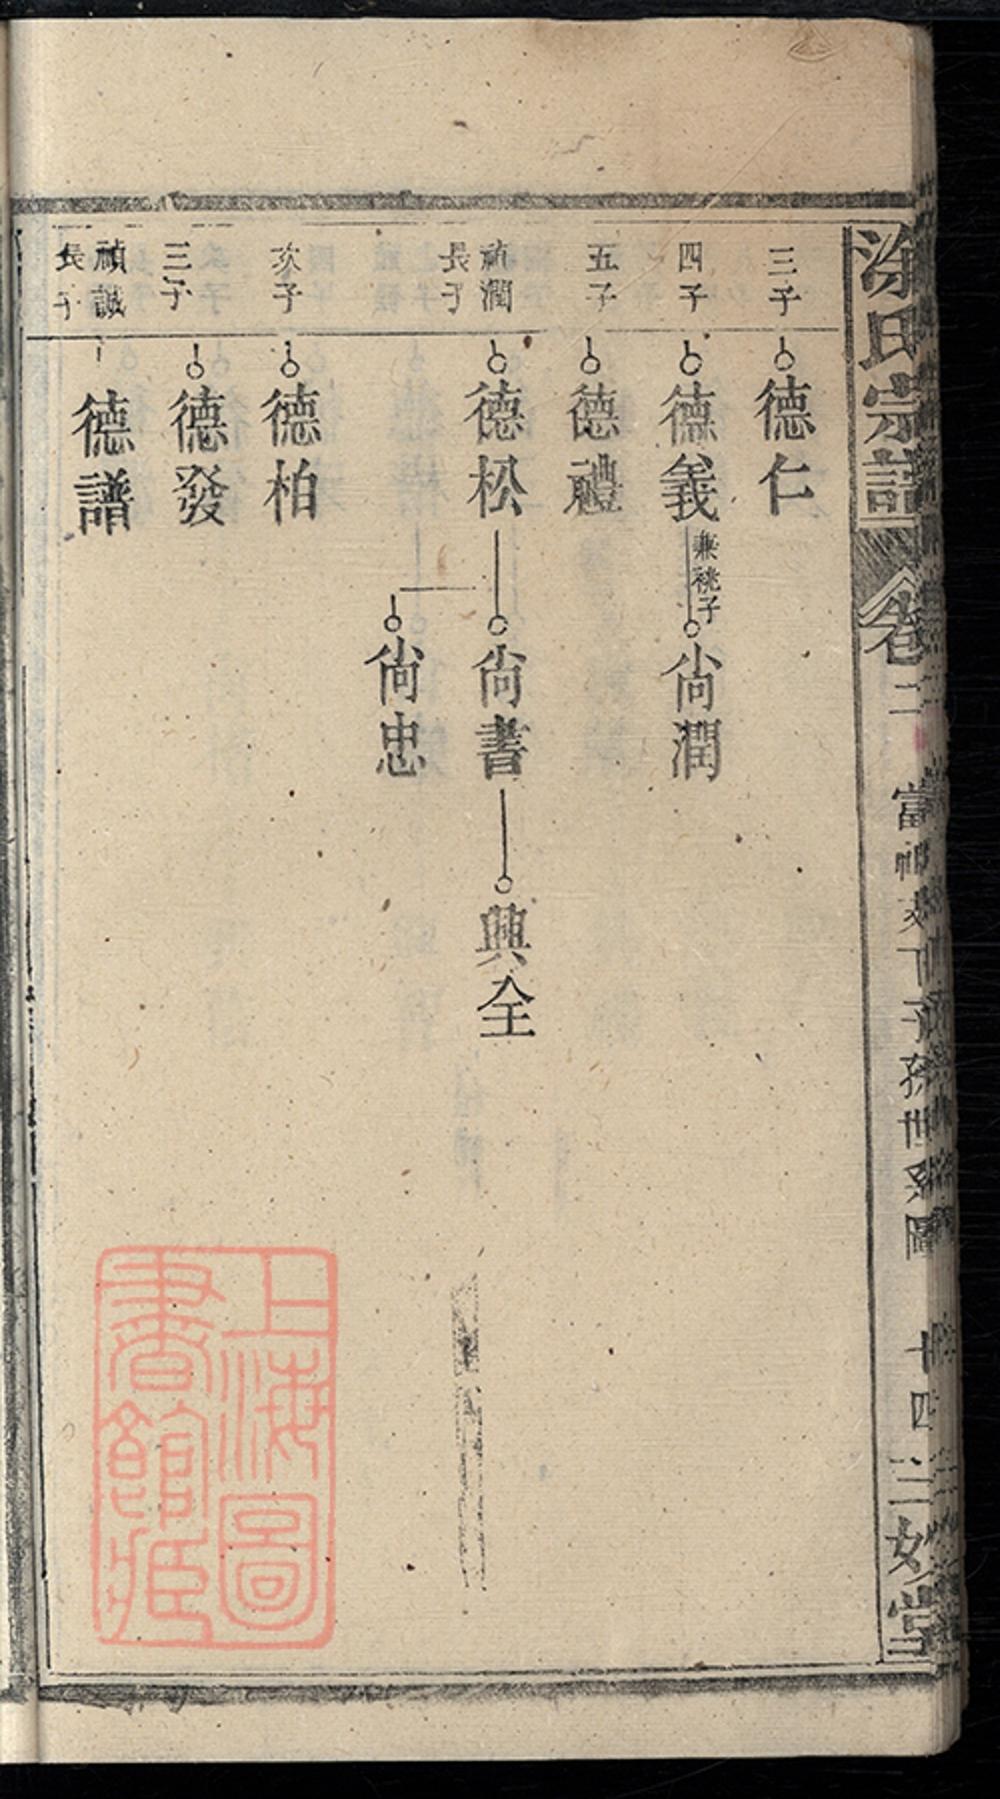 氏宗譜 卷二
當 下子孫世系圖 十四
三 堂
三子 德仁
四子 德義 兼祧子 尙潤
五子 德禮
禎潤長子 德松 尙書 興全
尙忠
次子 德柏
三子 德發
禎誠長子 德譜
上海圖書館藏